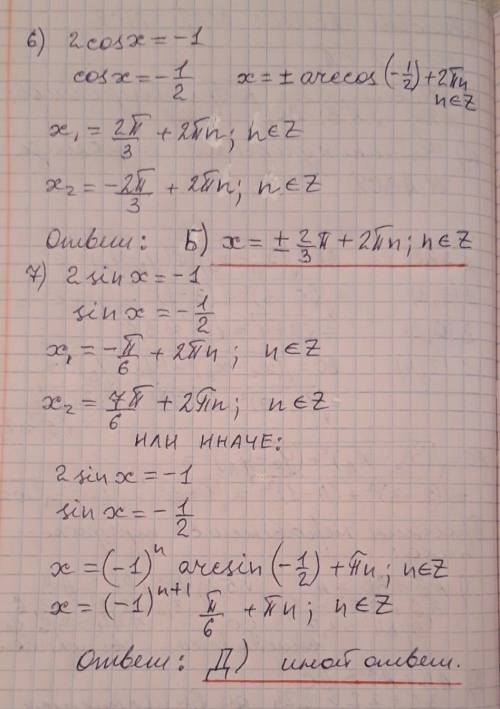 6) 2cosx = -1
cosx = -1/2   x = ± arccos(-1/2) + 2πn
n∈Z
x₁ = 2π/3 + 2πn; n∈Z
x₂ = -2π/3 + 2πn; n∈Z
Ответ: Б) x = ± 2/3 π + 2πn; n∈Z
7) 2sinx = -1
sinx = -1/2
x₁ = -π/6 + 2πn; n∈Z
x₂ = 7π/6 + 2πn; n∈Z
ИЛИ ИНАЧЕ:
2sinx = -1
sinx = -1/2
x = (-1)ⁿ arcsin(-1/2) + πn; n∈Z
x = (-1)ⁿ⁺¹ π/6 + πn; n∈Z
Ответ: Д) иной ответ.